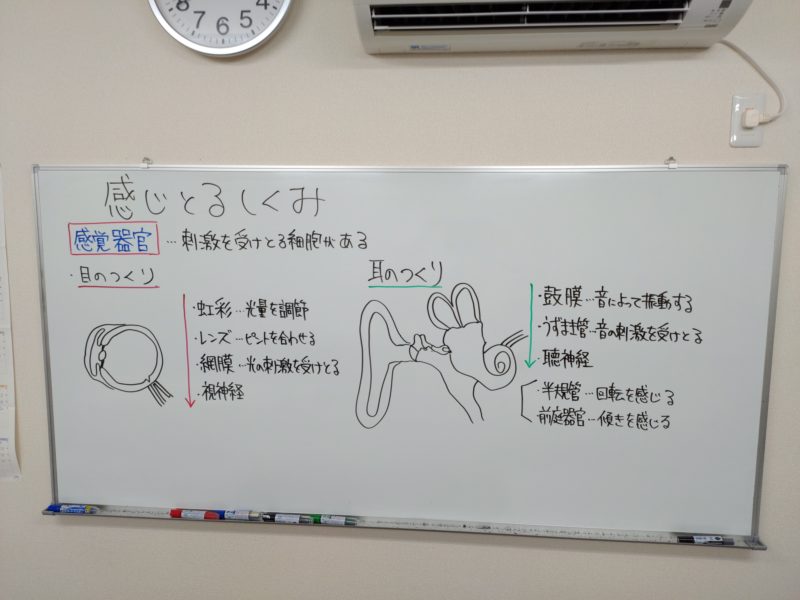 感じとるしくみ
感覚器官 …刺激を受けとる細胞がある
・目のつくり
・虹彩…光量を調節
・レンズ…ピントを合わせる
・網膜…光の刺激を受けとる
・視神経
耳のつくり
・鼓膜…音によって振動する
・うずまき管…音の刺激を受けとる
・聴神経
・半規管…回転を感じる
前庭器官…傾きを感じる
8 7 6 5 4